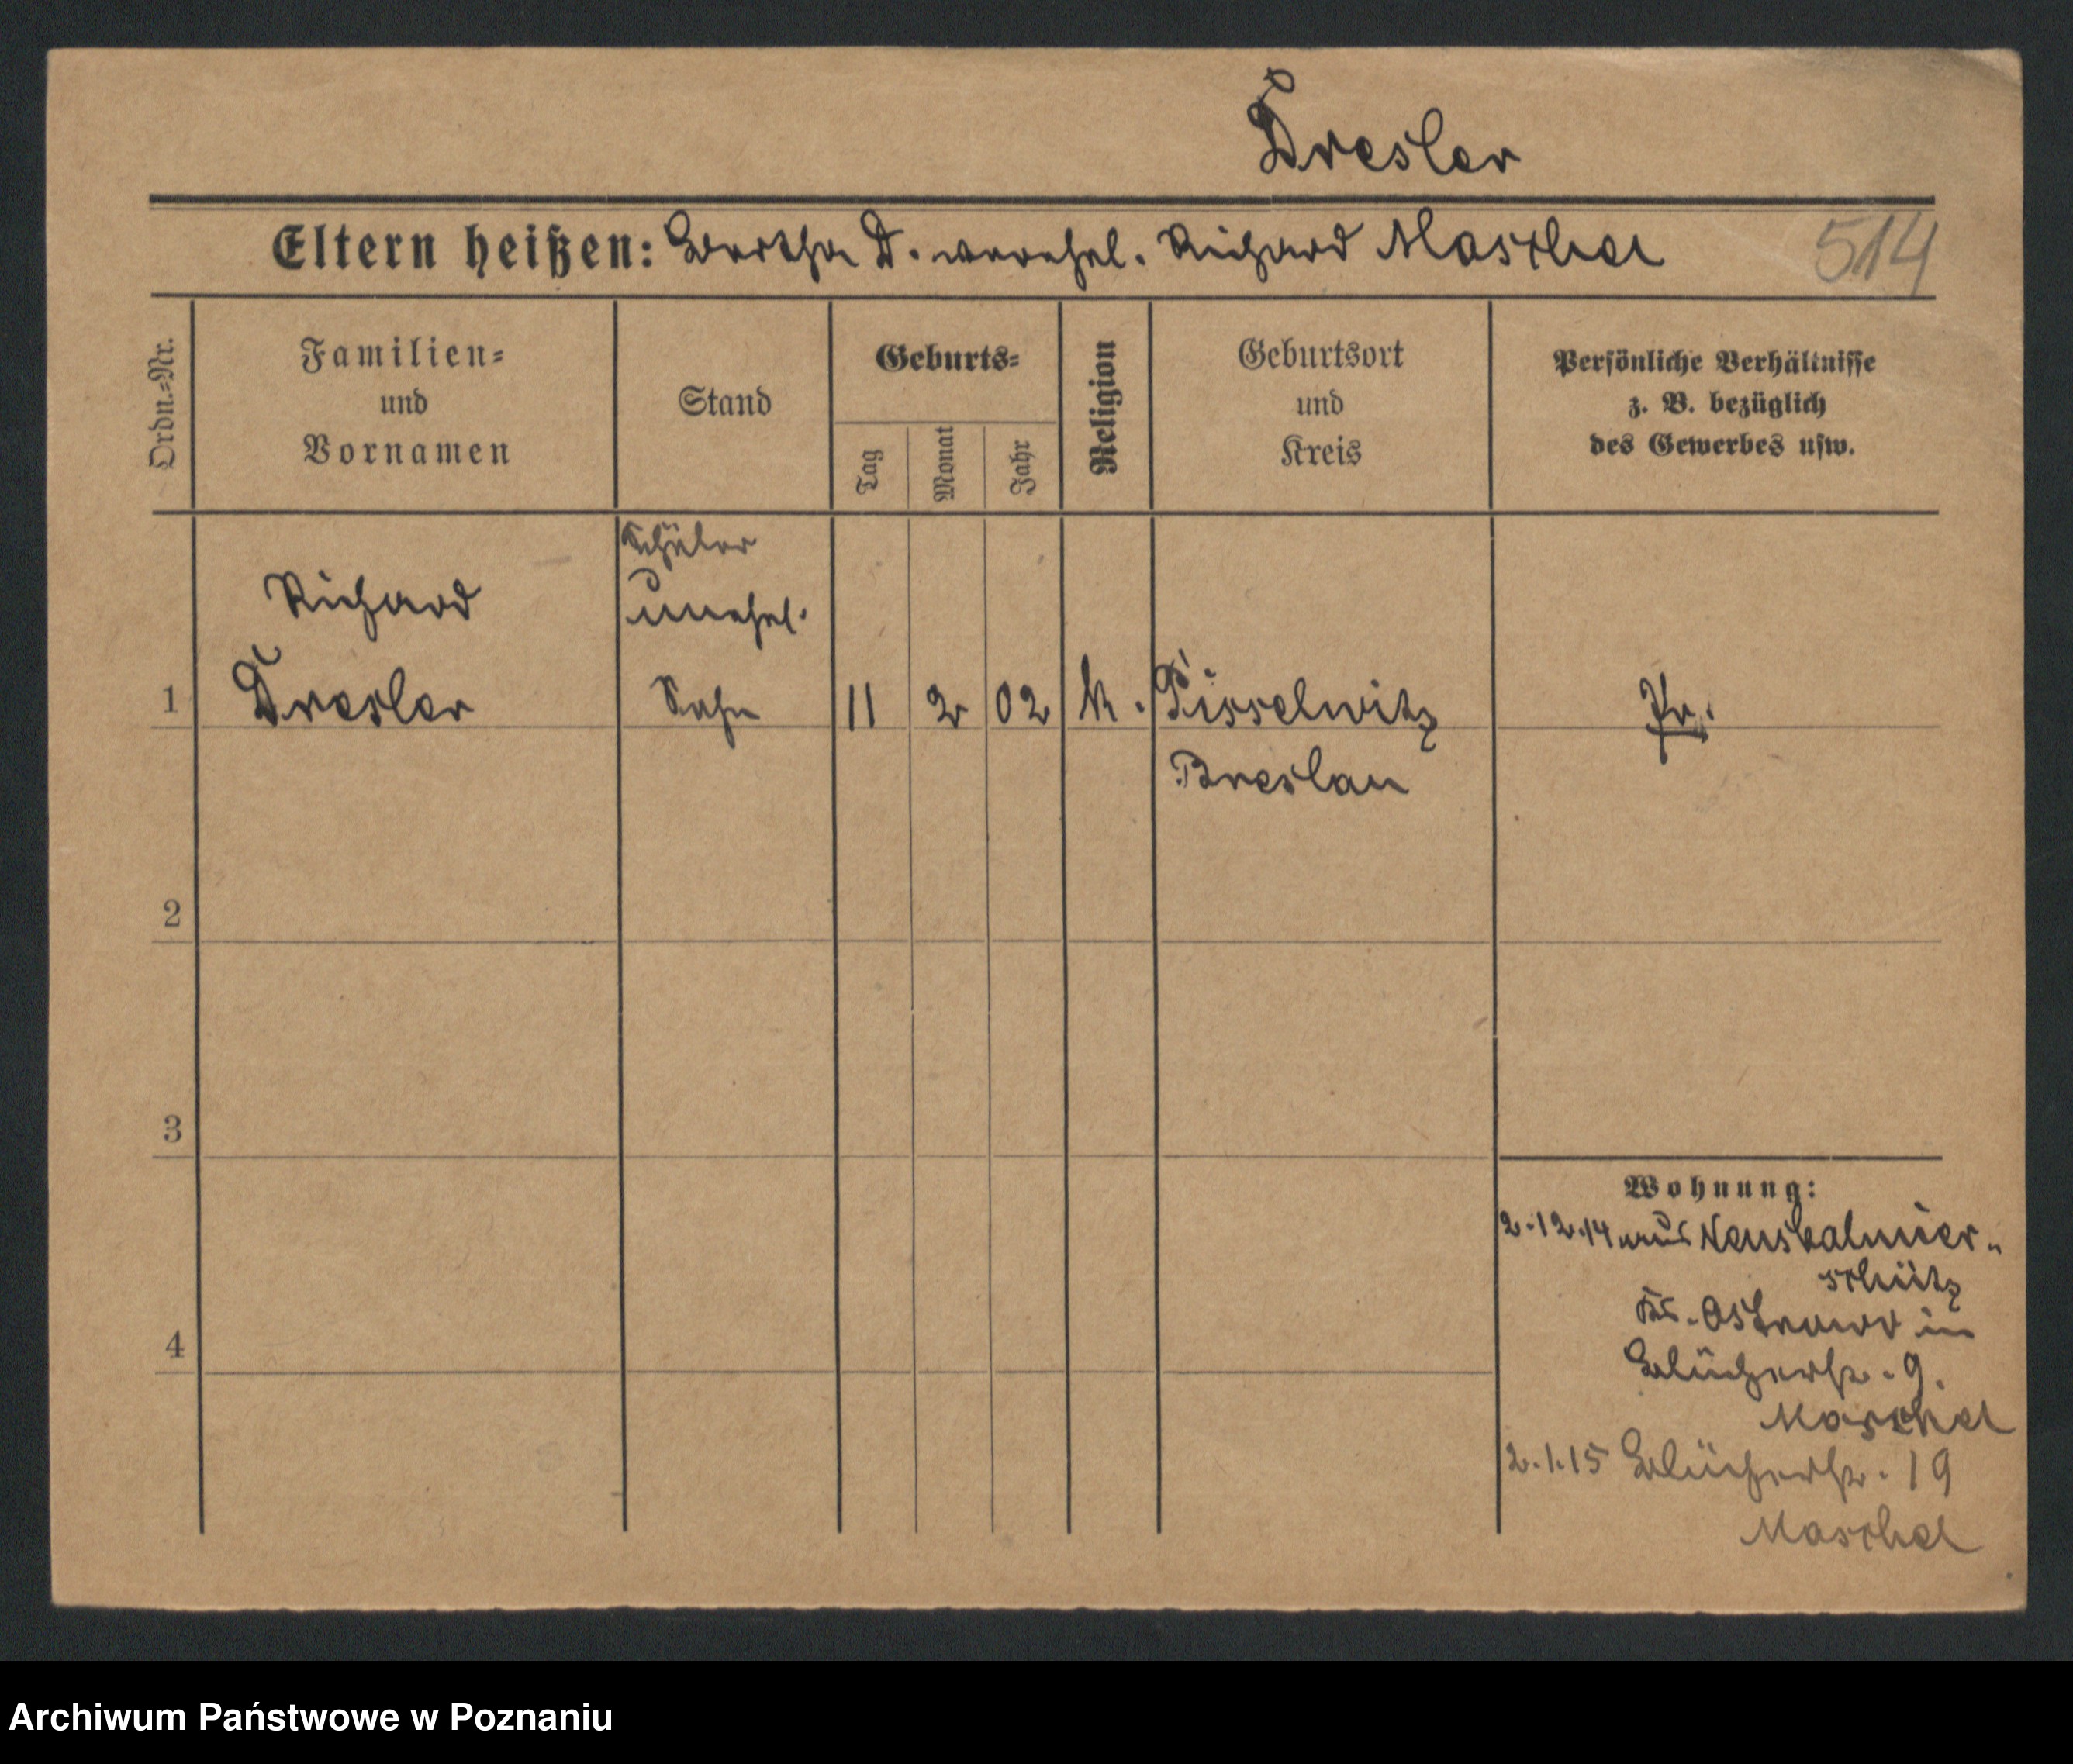 Dresler
Eltern heißen: Bertha D. verehel. Richard Maschel
514
Ordn.=Nr.
Familien=
und
Vornamen
Stand
Geburts=
Tag
Monat
Jahr
Religion
Geburtsort
und
Kreis
Persönliche Verhältnisse
z. B. bezüglich
des Gewerbes usw.
Schüler
Richard unehel.
1 Dresler Sohn 11 2 02 k. Pisselwitz Pr.
Breslau
2
3
4
Wohnung:
2.12.14 aus Neuskalmier-
schütz
Kr. Ostrowo in
Blücherstr. 9.
Maschel
2.1.15 Blücherstr. 19
Maschel
Archiwum Państwowe w Poznaniu